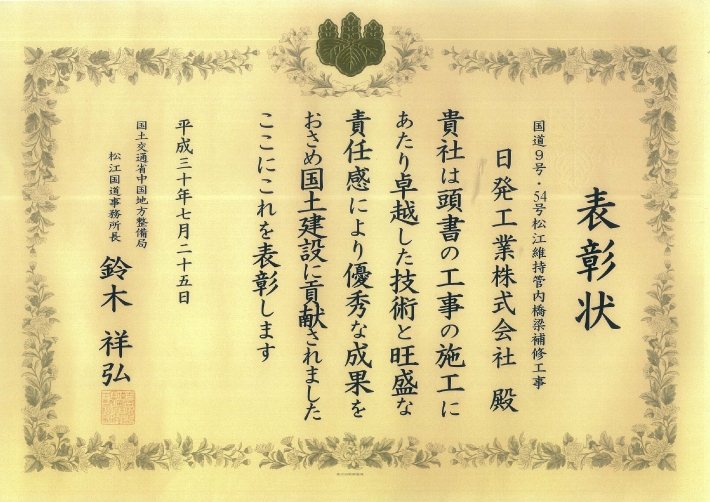 表彰状
国道9号・54号松江維持管内橋梁補修工事
日発工業株式会社 殿
貴社は頭書の工事の施工に
あたり卓越した技術と旺盛な
責任感により優秀な成果を
おさめ国土建設に貢献されました
ここにこれを表彰します
平成三十年七月二十五日
国土交通省中国地方整備局
松江国道事務所長
鈴木 祥弘